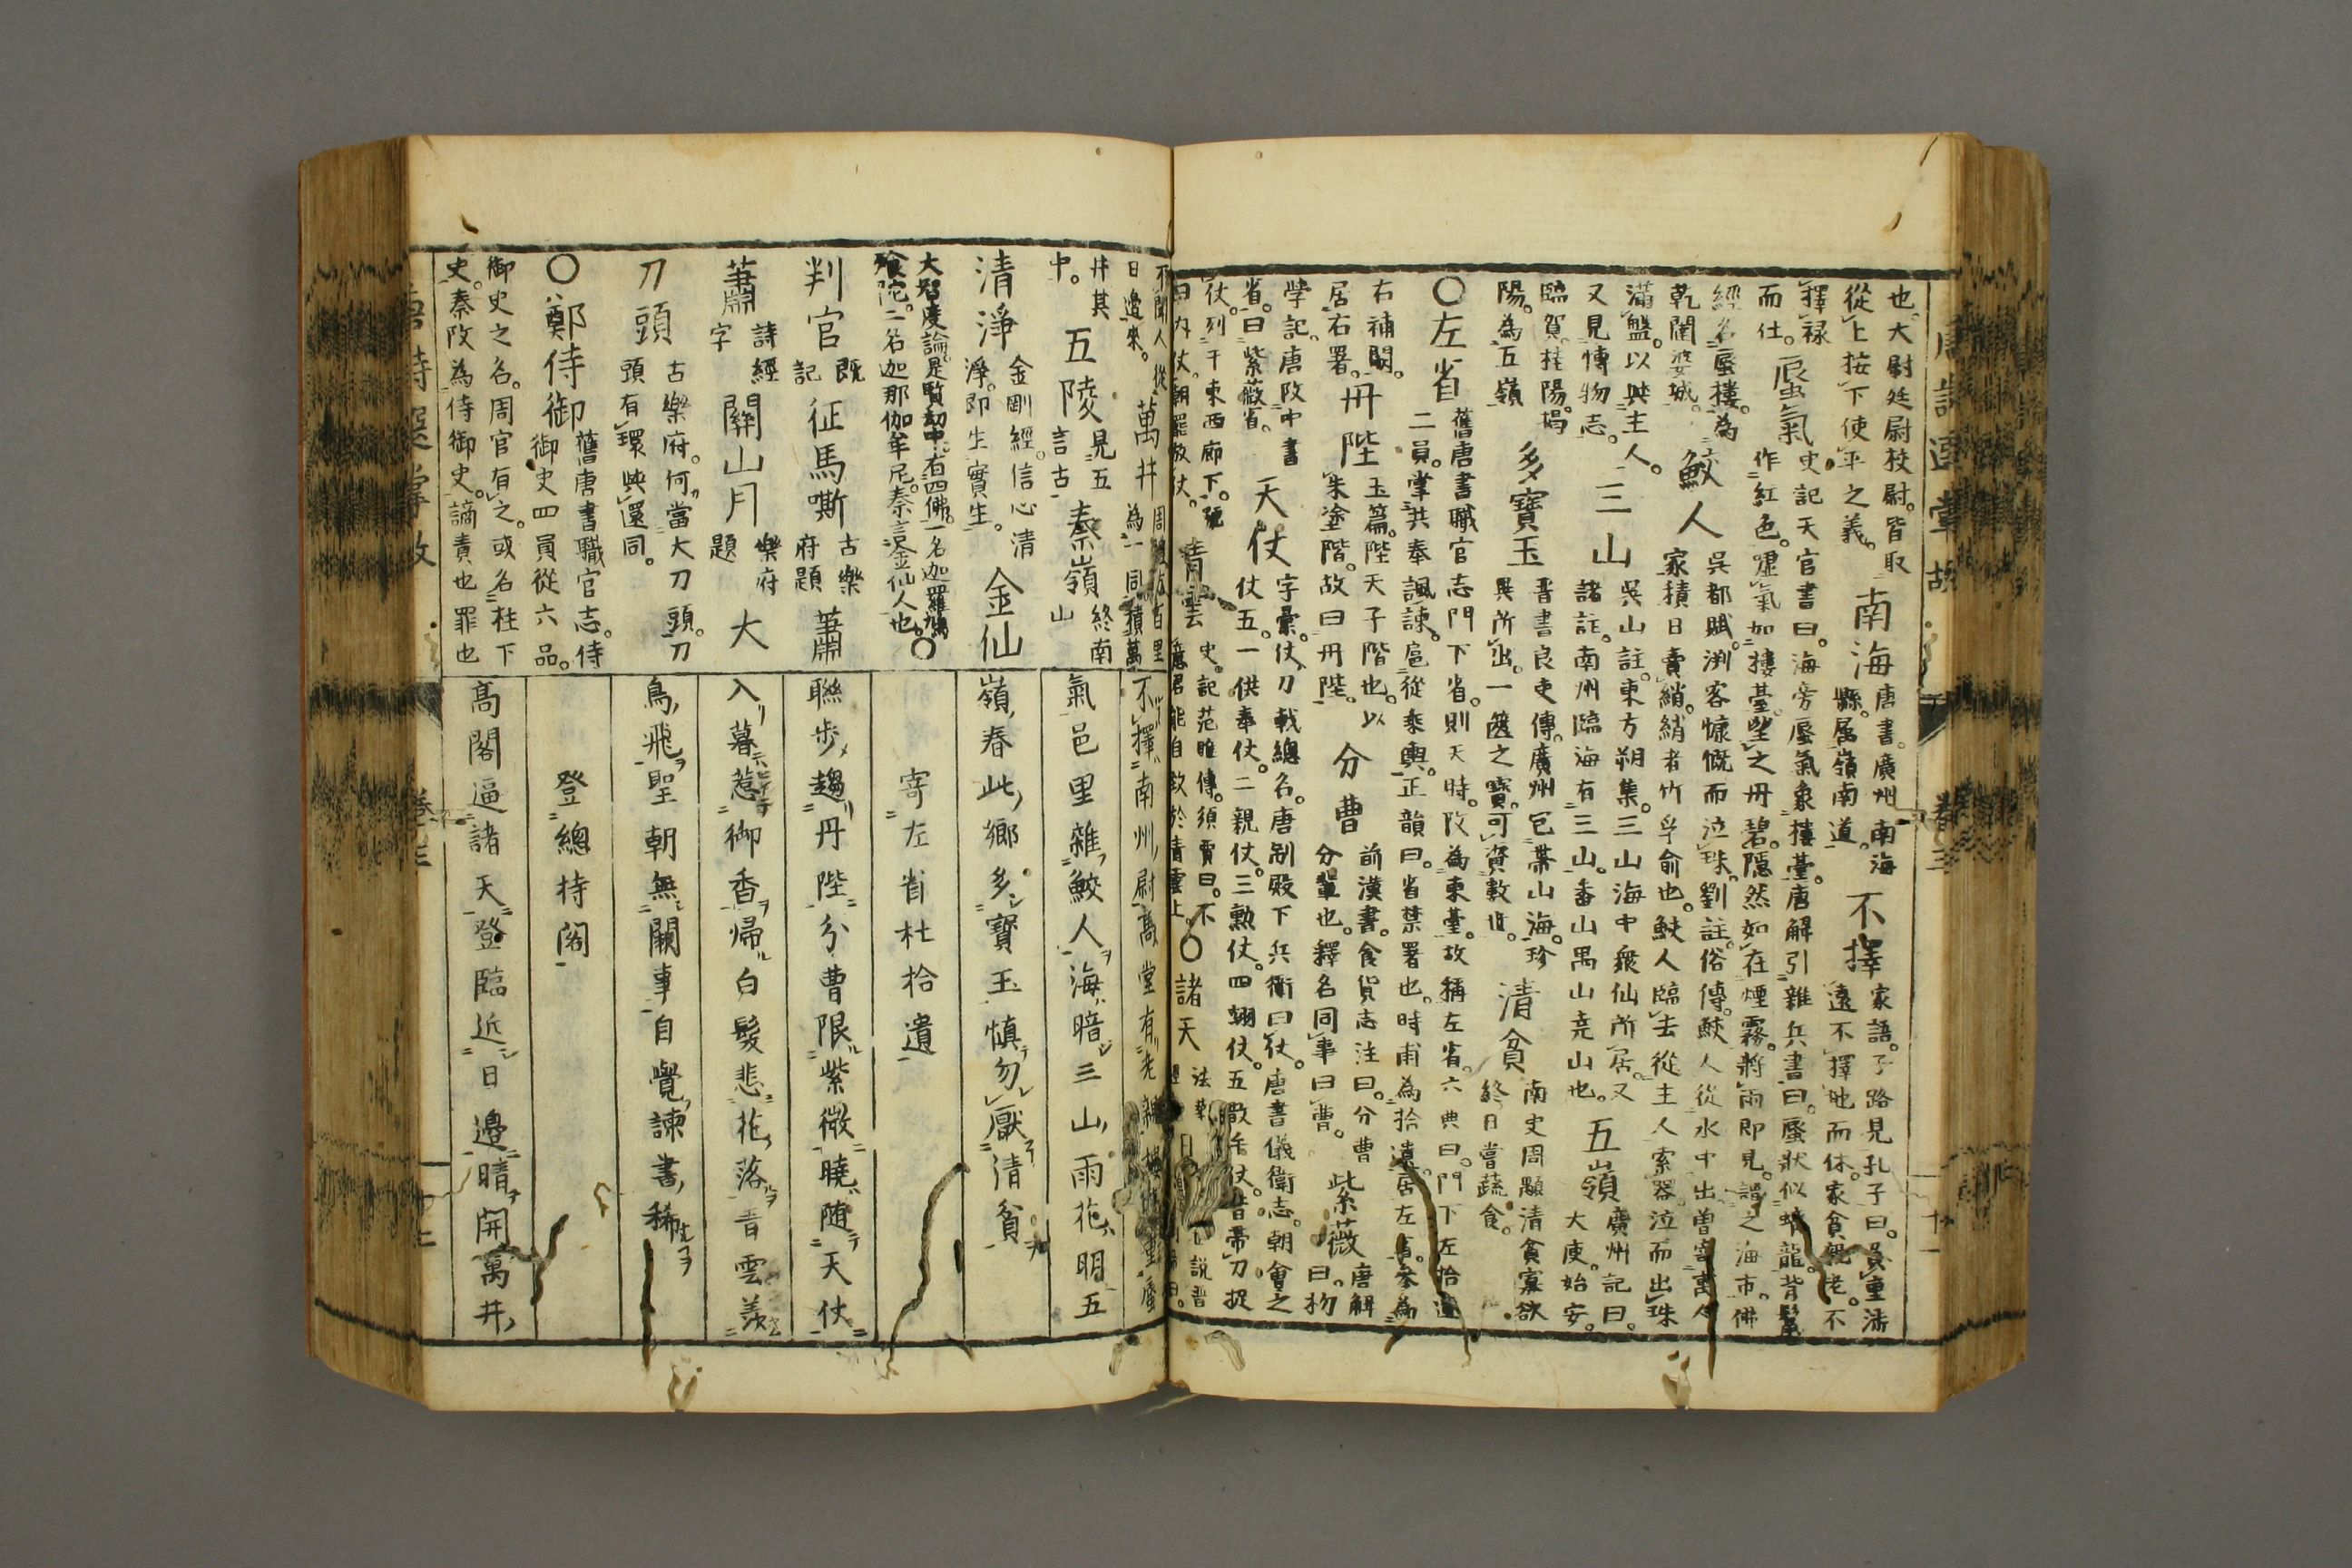 唐詩選掌故
卷三
十一
也。大尉廷尉校尉。皆取
從上按下使平之義。
南海
唐書。廣州南海
縣。属嶺南道。
不擇
家語。子路見孔子曰。負重涉
遠不擇地而休。家貧親老。不
擇禄
而仕。
蜃氣
史記天官書曰。海旁蜃氣象樓臺。唐解引雜兵書曰。蜃狀似蛟龍。背鬣
作紅色。噓氣如樓臺。望之丹碧。隠然如在煙霧。將雨即見。謂之海市。佛
經名蜃樓。為
乾闥婆城。
鮫人
吳都賦。渕客慷慨而泣珠。劉註。俗傳。鮫人從水中出曽寄寓人
家積日賣綃。綃者竹孚俞也。鮫人臨去從主人索器泣而出珠
滿盤。以與主人。
又見博物志。
三山
吳山註。東方朔集。三山海中衆仙所居。又
諸註。南州臨海有三山。番山禺山尭山也。
五嶺
廣州記曰。
大庾。始安。
臨賀。桂陽。揭
陽。為五嶺
多寶玉
晋書良吏傳。廣州包帯山海。珍
異所出。一篋之寶。可資數世。
清貧
南史周顒清貧寡欲
終日嘗蔬食。
○左省
舊唐書職官志門下省。則天時。改為東臺。故稱左省。六典曰。門下左拾遺
二員。掌共奉諷諫。扈從乘輿。正韻曰。省禁署也。時甫為拾遺。居左省。參為
右補闕。
居右署。
丹陛
玉篇。陛天子階也。以
朱塗階。故曰丹陛。
分曹
前漢書。食貨志注曰。分曹
分輩也。釋名同事曰曹。
紫薇
唐解
曰。初
學記。唐改中書
省。曰紫薇省。
天仗
字彙。仗。刀戟總名。唐制殿下兵衛曰仗。唐書儀衛志。朝會之
仗五。一供奉仗。二親仗。三勲仗。四翊仗。五散手仗。皆帶刀捉
仗。列于東西廊下。號
曰内仗。朝罷放仗。
青雲
史記范雎傳。須賈曰。不
意君能自致於青雲上。
○諸天
法華
不聞人從
日邊來。
萬井
百里
為一同積萬
井其
中。
五陵
見五
言古
秦嶺
終南
山
清淨
金剛經。信心清
淨。即生實生。
金仙
大智度論。是賢劫中。有四佛。一名迦羅鳩
飡陀。二名迦那伽牟尼。秦言金仙人也。
○判官
既
記
征馬嘶
古樂
府題
蕭蕭
詩經
字
關山月
樂府
題
大刀頭
古樂府。何當大刀頭。刀
頭有環與還同。
○鄭侍御
舊唐書職官志。侍
御史四員從六品。
御史之名。周官有之。或名柱下
史。秦改為侍御史。謫責也罪也
不擇南州尉高堂有老親樓臺重蜃
氣邑里雜鮫人海暗三山雨花明五
嶺春此郷多寶玉慎勿厭清貧
寄左省杜拾遺
聯歩趨丹陛分曹限紫微曉随天仗
入暮惹御香歸白髪悲花落青雲羨
鳥飛聖朝無闕事自覺諫書稀
登總持閣
高閣逼諸天登臨近日邊晴開萬井
唐詩選掌故
卷三